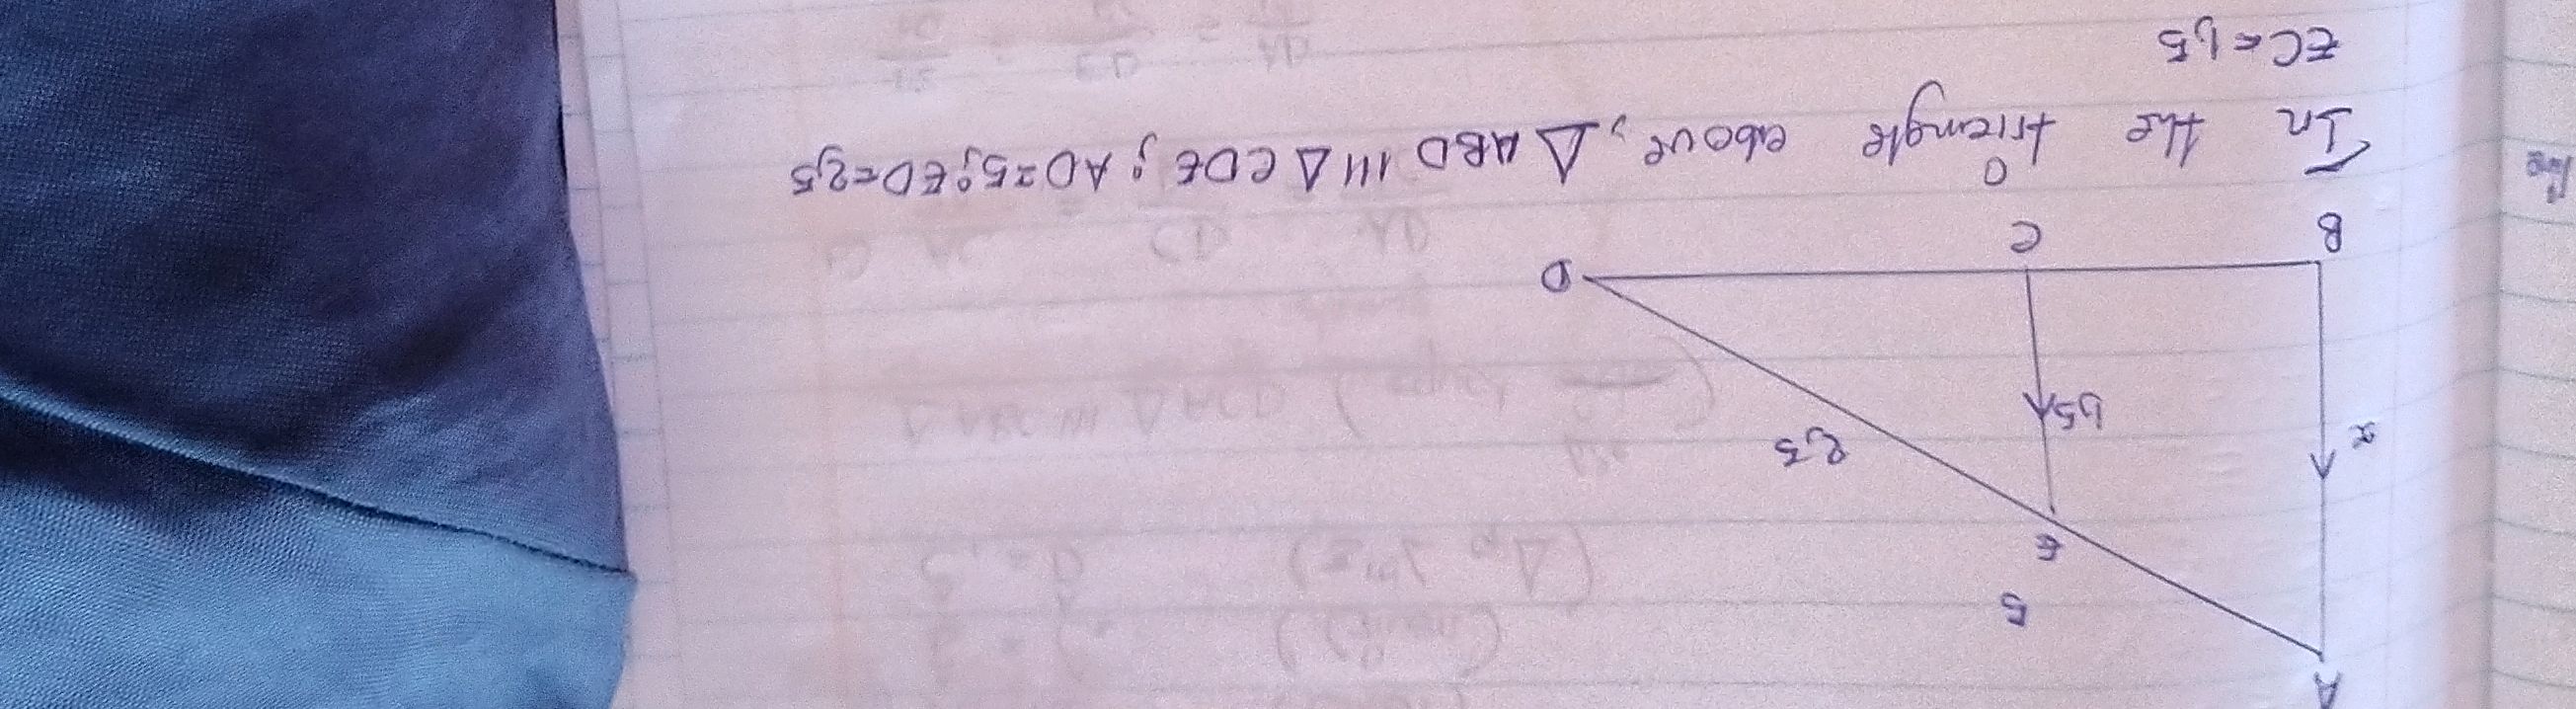 A
5
E
x
1,5
2,5
B C D
In the triangle above, Δ ABD ||| Δ CDE ; AD=5; ED=2,5
EC=1,5